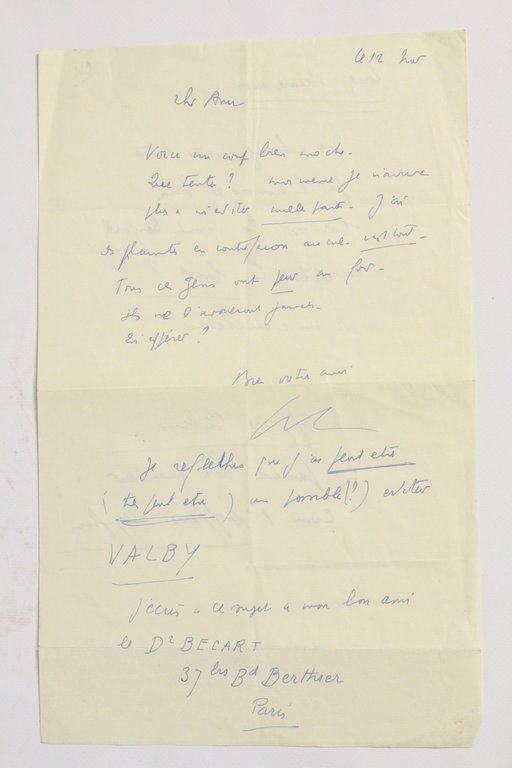 le 12 Nov
Cher Ami
Voici un coup bien moche.
Que tenter? moi même je n'arrive
plus a m'editer nulle part. J'ai
plaintes en contrefacon au cul. c'est tout.
Tous ces gens ont peur au fond.
Ils ne l'avoueront jamais.
Bien votre ami
Je réfléchis que j'ai peut etre
(très peut etre) un possible(?) editeur
VALBY
J'écris a ce sujet a mon bon ami
le Dr BECART
37 bis Bd Berthier
Paris